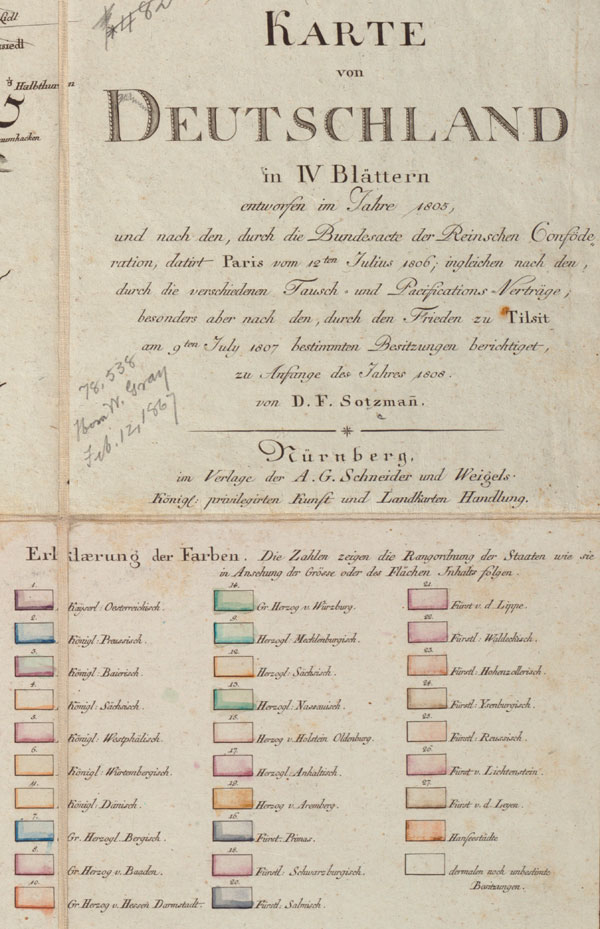 #482
Lidl
siedl
Halbthurn
aumhacken
KARTE
von
DEUTSCHLAND
in IV Blättern
entworfen im Jahre 1805,
und nach den, durch die Bundesacte der Reinschen Conföde
ration, datirt Paris vom 12ten Julius 1806; ingleichen nach den,
durch die verschiedenen Tausch- und Pacifications-Verträge,
besonders aber nach den, durch den Frieden zu Tilsit
am 9ten July 1807 bestimmten Besitzungen berichtiget,
zu Anfange des Jahres 1808.
von D. F. Sotzmañ.
78,538
W. Gray
Feb. 12, 1867
Nürnberg,
im Verlage der A. G. Schneider und Weigels
Königl: privilegirten Kunst und Landkarten Handlung.
Erklærung der Farben. Die Zahlen zeigen die Rangordnung der Staaten wie sie
in Ansehung der Grösse oder des Flächen Inhalts folgen.
1. Kayserl: Oesterreichisch.
2. Königl: Preussisch.
3. Königl: Baierisch.
4. Königl: Sächsisch.
5. Königl: Westphälisch.
6. Königl: Würtembergisch.
11. Königl: Dänisch.
7. Gr. Herzogl: Bergisch.
8. Gr. Herzog v. Baaden.
10. Gr. Herzog v. Hessen Darmstadt.
14. Gr. Herzog v. Würzburg.
9. Herzogl: Mecklenburgisch.
12. Herzogl: Sächsisch.
13. Herzogl: Nassauisch.
15. Herzog v. Holstein Oldenburg.
17. Herzogl: Anhaltisch.
19. Herzog v. Aremberg.
16. Fürst-Primas.
18. Fürstl: Schwarzburgisch.
20. Fürstl: Salmisch.
21. Fürst v. d. Lippe.
22. Fürstl: Waldeckisch.
23. Fürstl: Hohenzollerisch.
24. Fürstl: Ysenburgisch.
25. Fürstl: Reussisch.
26. Fürst v. Lichtenstein.
27. Fürst v. d. Leyen.
Hanseestädte
dermalen noch unbestimte
Besitzungen.